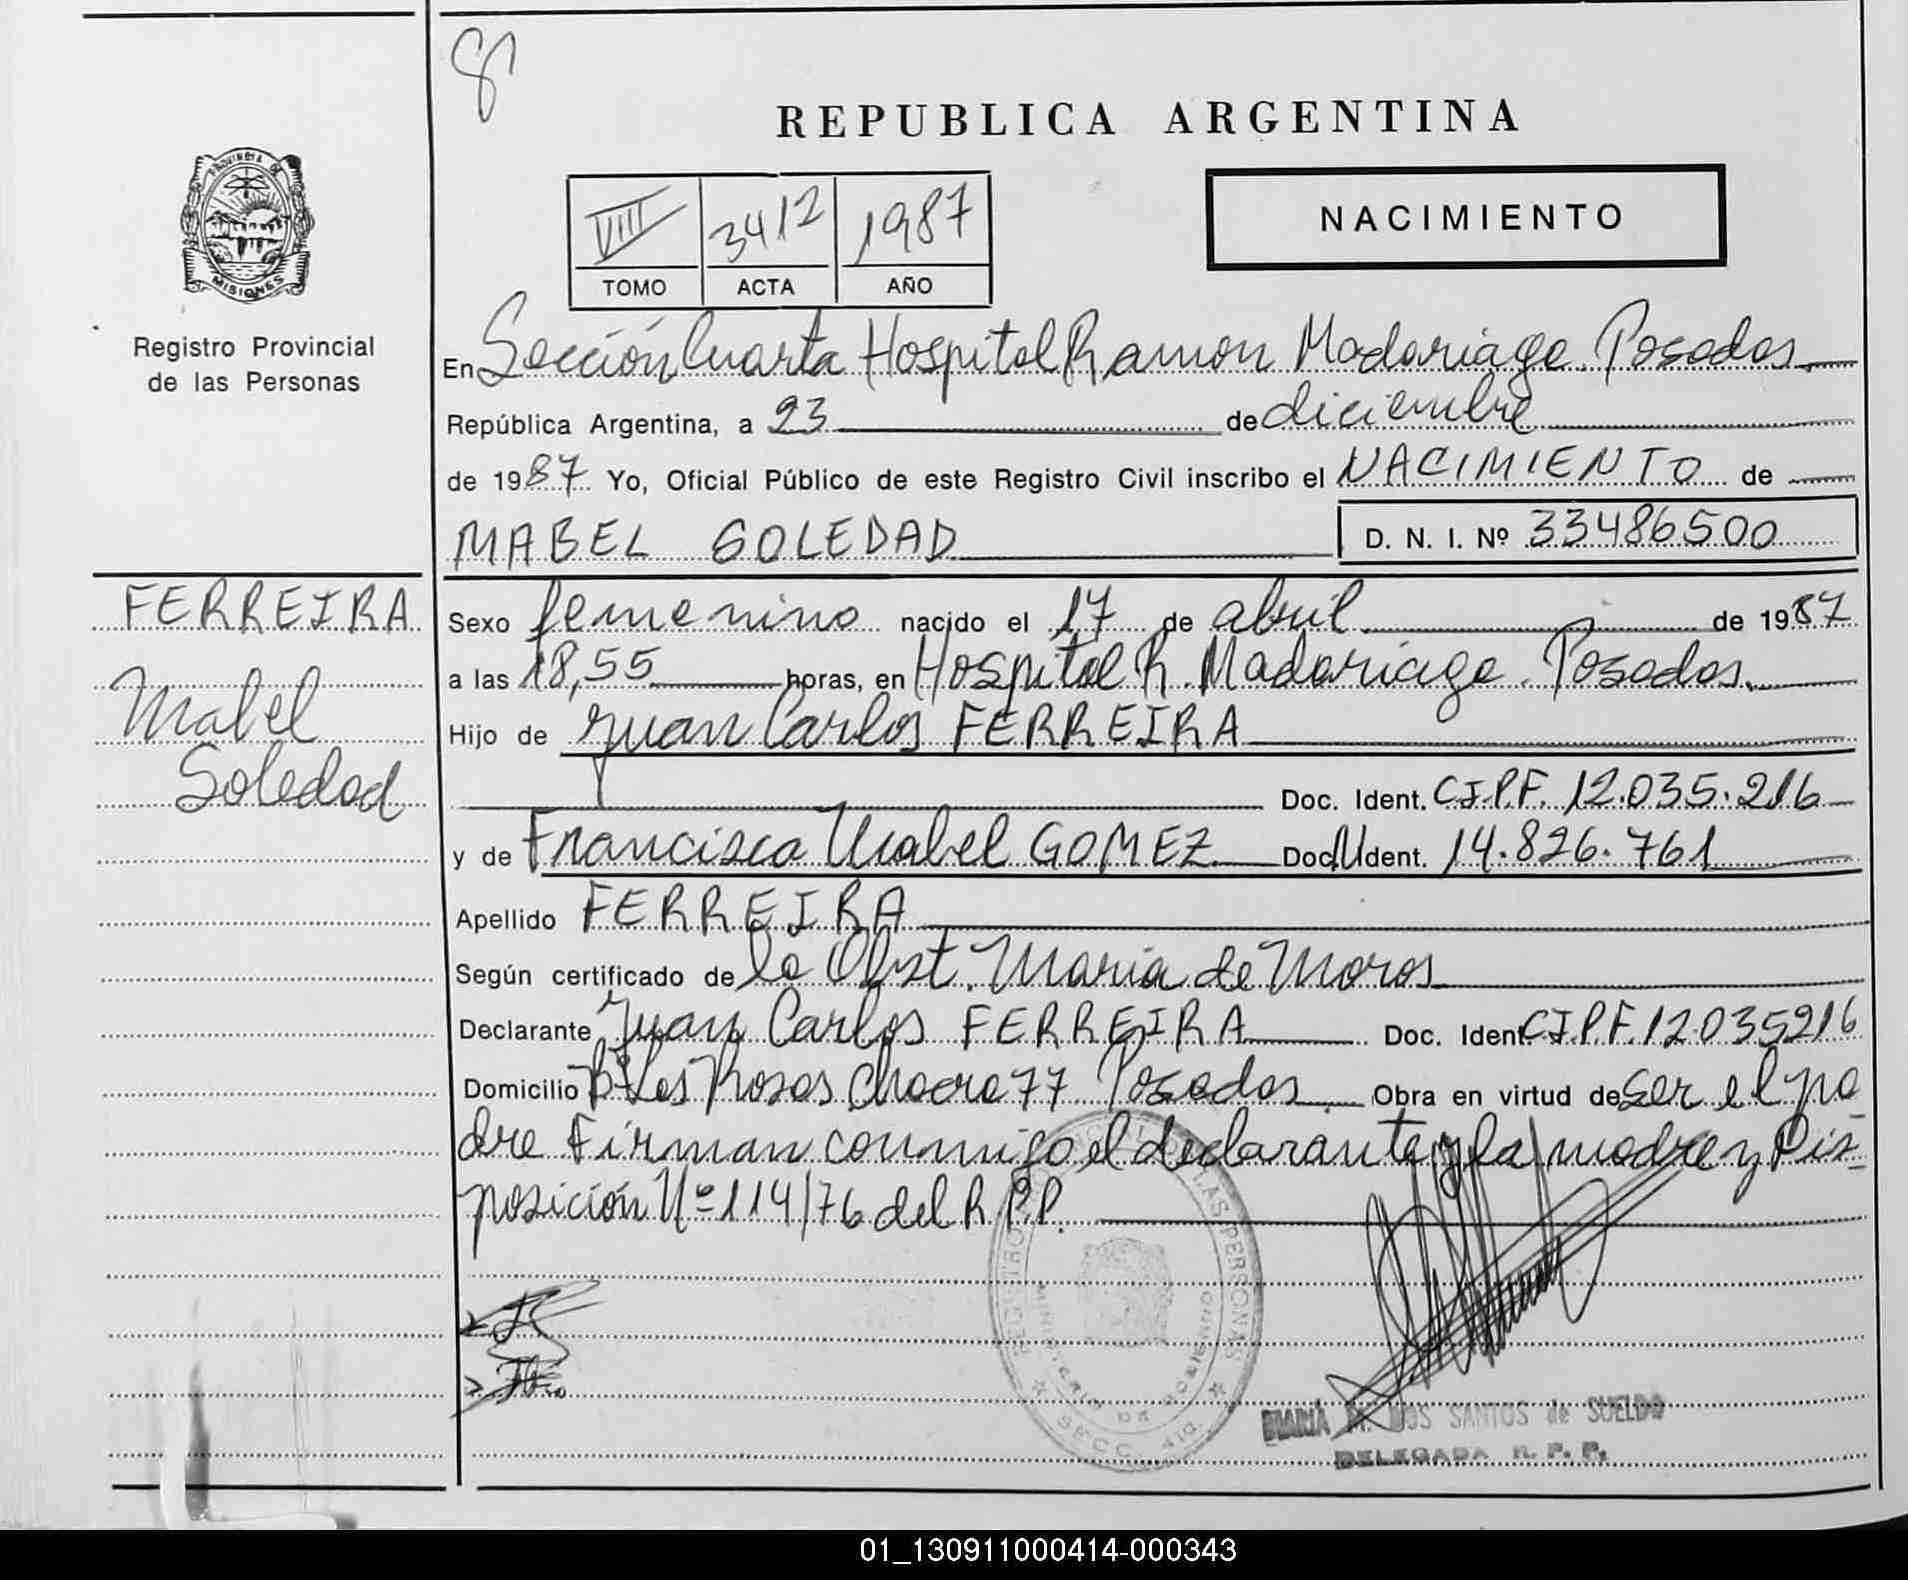 8
REPUBLICA ARGENTINA
PROVINCIA DE
MISIONES
Registro Provincial
de las Personas
VIII 3412 1987
TOMO ACTA AÑO
NACIMIENTO
En Sección Cuarta Hospital Ramon Madariaga. Posadas.
República Argentina, a 23 de diciembre
de 1987 Yo, Oficial Público de este Registro Civil inscribo el NACIMIENTO de
MABEL SOLEDAD D. N. I. Nº 33486500
FERREIRA
Mabel
Soledad
Sexo femenino nacido el 17 de abril de 1987
a las 18,55 horas, en Hospital R. Madariaga. Posadas.
Hijo de Juan Carlos FERREIRA
Doc. Ident. C.I.P.F. 12.035.216
y de Francisca Mabel GOMEZ Doc. Ident. 14.826.761
Apellido FERREIRA
Según certificado de la Obst. Maria de Moros
Declarante Juan Carlos FERREIRA Doc. Ident. C.I.P.F. 12.035216
Domicilio Bº Las Rosas Chacra 77 Posadas Obra en virtud de ser el pa
dre Firman conmigo el declarante y la madre y Dis-
posición Nº 114/76 del R.P.P.
REGISTRO LAS PERSONAS
MINISTERIO DE GOBIERNO
SECC. 4ta.
MARIA M. DOS SANTOS de SUELDO
DELEGADA R. P. P.
01_130911000414-000343